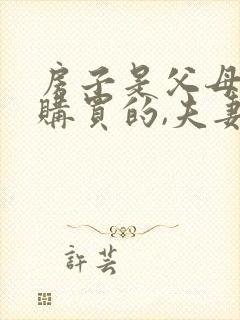 房子是父母
購買的,夫妻
許芸